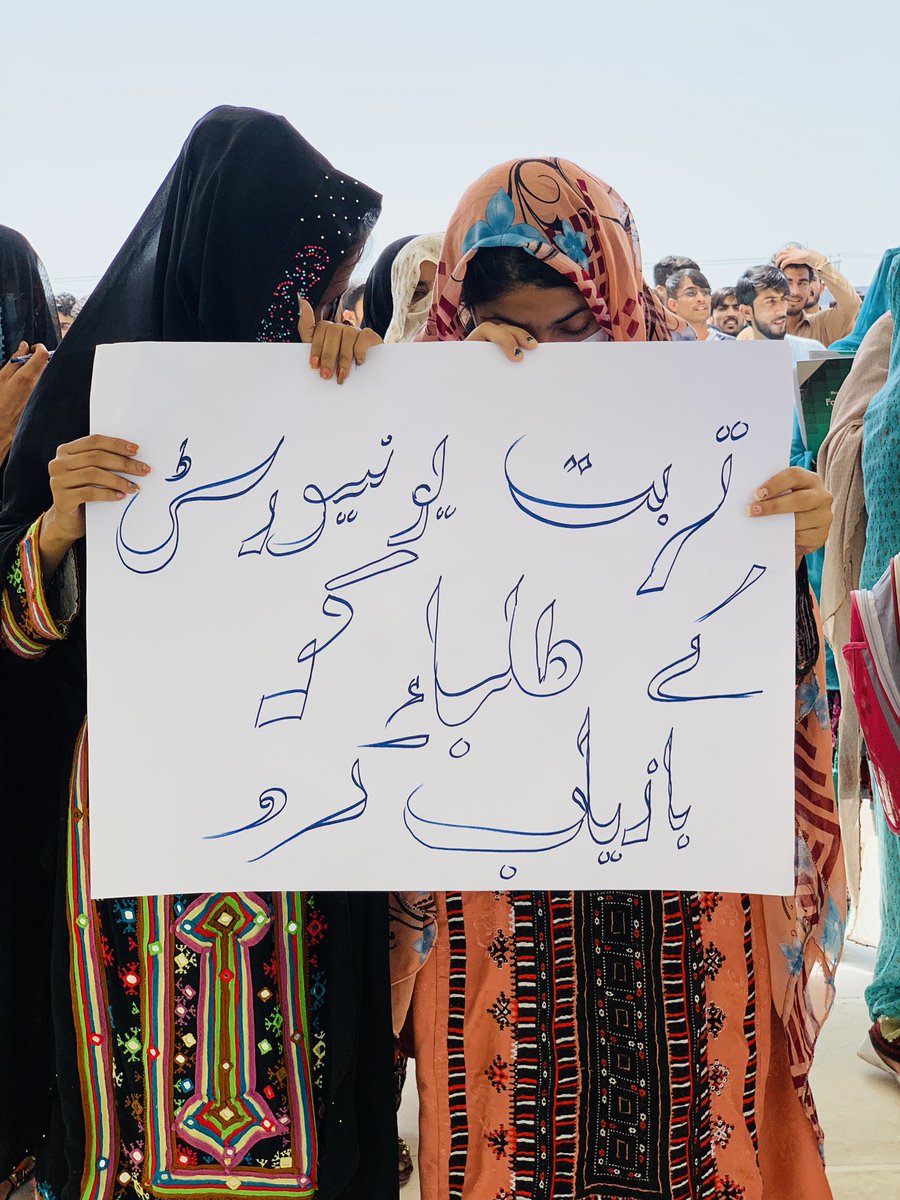 تربت یونیورسٹی
کے طلباء کو
بازیاب کرو